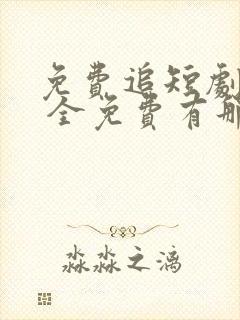 免費追短劇
全免費有哪
淼淼之漓